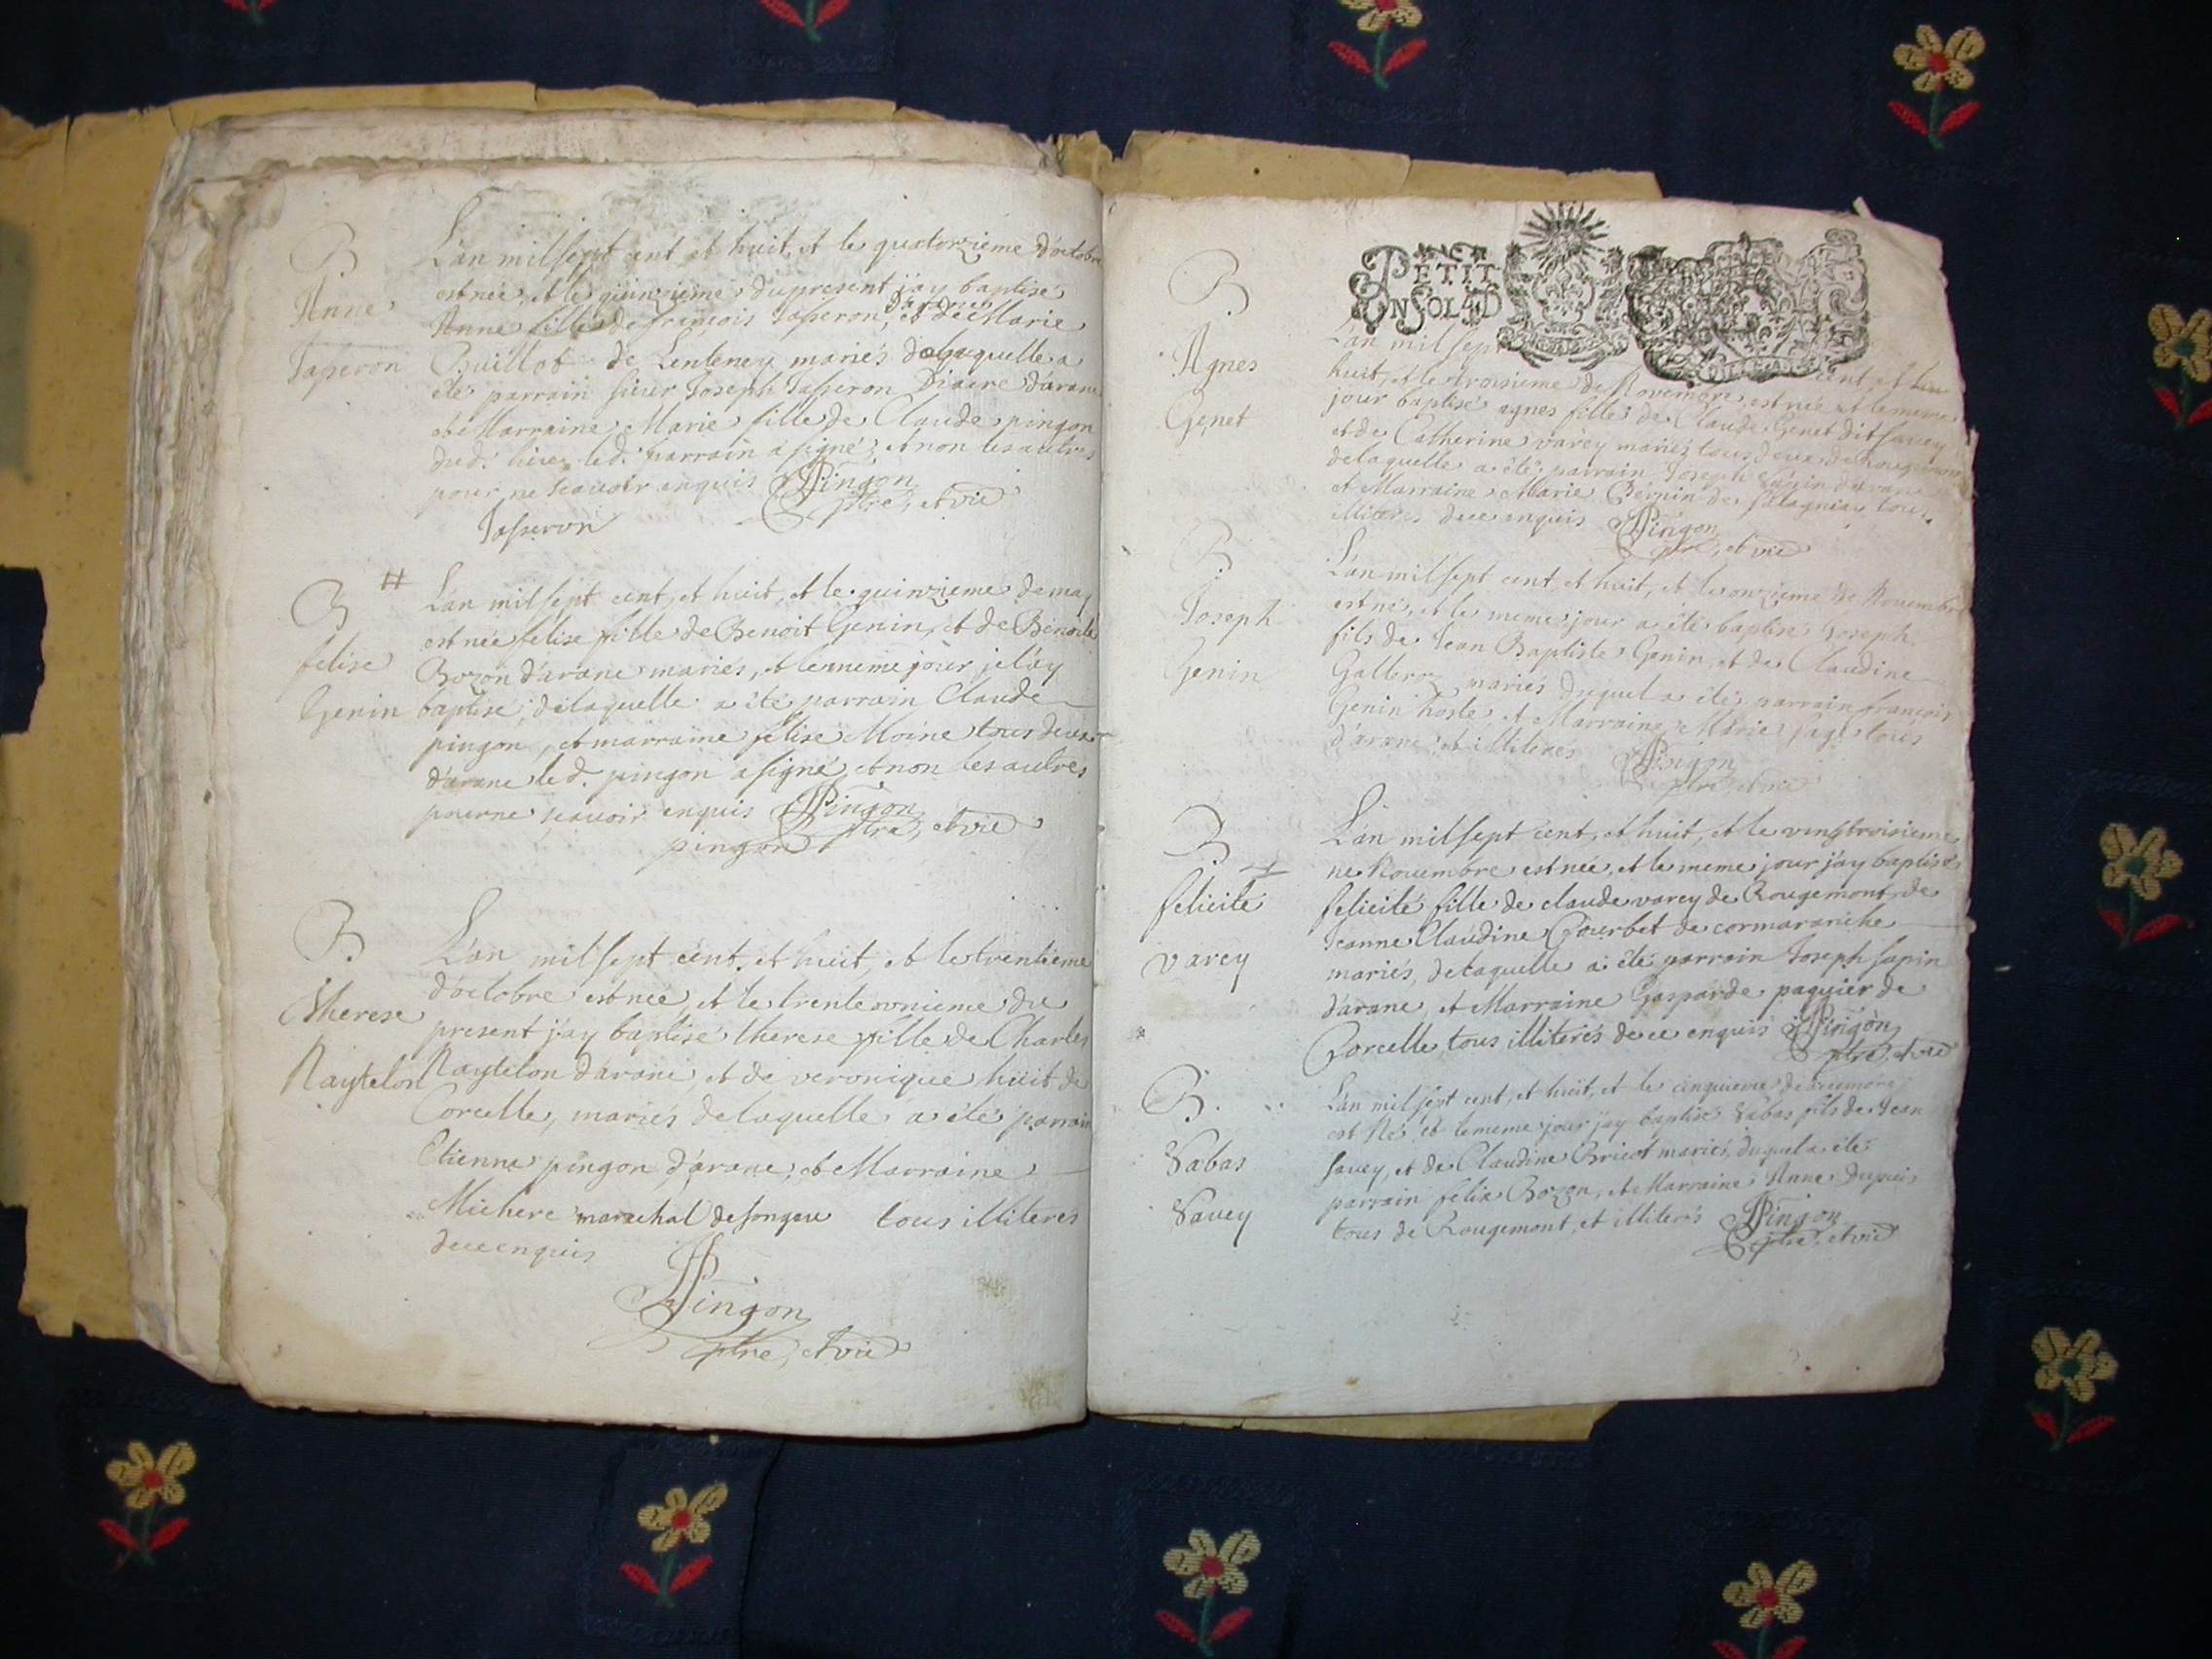 B
Anne
Tasseron
L'an mil sept cent et huit, et le quatorzieme d'octobre
est née, et le quinzieme du present j'ay baptisé
d'arane
Anne fille de françois Tasseron, et de Marie
Buillot de Lenteney mariés de laquelle a
été parrain sieur Joseph Tasseron Diacre d'arane
et Marraine Marie fille de Claude pingon
dud. lieu, led. parrain a signé, et non les autres
pour ne sçavoir enquis Pingon
ptre, et vic
Tasseron
B #
felise
Genin
L'an mil sept cent, et huit, et le quinzieme de may
est née felise fille de Benoit Genin, et de Benoite
Bozon d'arane mariés, et le meme jour je l'ay
baptisé, de laquelle a été parrain Claude
pingon, et marraine felise Moine tous deux
d'arane led. pingon a signé, et non les autres
pour ne sçavoir enquis Pingon
pingon ptre, et vic
B
Therese
Naytelon
L'an mil sept cent, et huit, et le trentieme
d'octobre est née, et le trente onieme du
present j'ay baptisé therese fille de Charles
Naytelon d'arane, et de veronique huit de
Corcelle, mariés de laquelle a été parrain
Etienne pingon d'arane, et Marraine
Michere marechal de songeu tous illiteres
de ce enquis
Pingon
ptre, et vic
PETIT
ON SOL 4 D
B
Agnes
Genet
L'an mil sept cent, et
huit, et le troisieme de Novembre, est née et le meme
jour baptisé agnes fille de Claude Genet dit savey
et de Catherine varey mariés tous deux de Rougemont
de laquelle a été parrain Joseph sapin d'arane
et Marraine Marie Bernin de tous
illiteres de ce enquis Pingon
ptre, et vic
B
Joseph
Genin
L'an mil sept cent, et huit, et le onzieme de Novembre
est né, et le meme jour a été baptisé Joseph
fils de Jean Baptiste Genin, et de Claudine
mariés duquel a été parrain françois
Genin hoste, et Marraine Marie sage tous
d'arane, et illiteres Pingon
ptre, et vic
B
felicité
varey
L'an mil sept cent, et huit, et le vingtroisieme
ne Novembre est née, et le meme jour j'ay baptisé
felicité fille de claude varey de Rougemont, de
Jeanne Claudine Courbet de cormaranche
mariés, de laquelle a été parrain Joseph sapin
d'arane, et Marraine Gasparde paquier de
Corcelle tous illiterés de ce enquis Pingon
ptre, et vic
B
Sabas
Savey
L'an mil sept cent, et huit, et le cinquieme decembre
est Né, et le meme jour j'ay baptisé Sabas fils de Jean
savey, et de Claudine Bricot mariés, duquel a été
parrain felix Bozon, et Marraine Anne Dupuis
tous de Rougemont, et illiterés Pingon
ptre, et vic